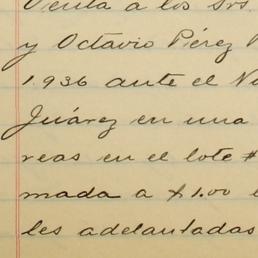 Venta a los Srs
y Octavio Pérez
1.936 ante el
Juárez en una
reas en el lote #
mada a $1.00
les adelantadas